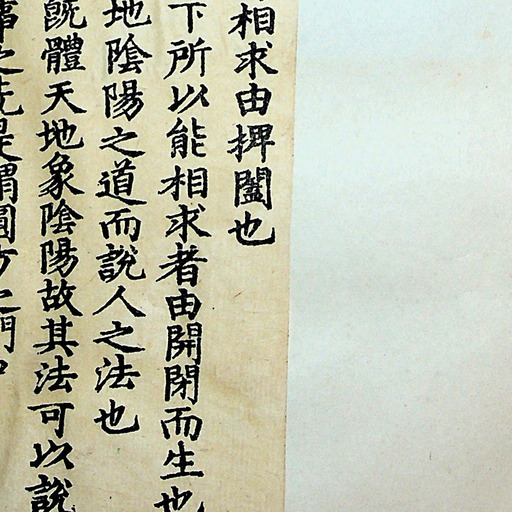 相求由捭闔也
下所以能相求者由開閉而生也
地陰陽之道而說人之法也
旣體天地象陰陽故其法可以說
事之先是謂圓方之門